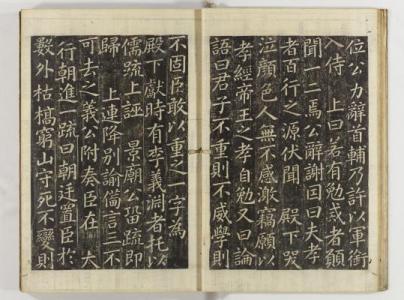 位公力辭首輔乃許以軍銜
入侍　上曰若有勉戒者願
聞一二焉公辭謝因曰夫孝
者百行之源伏聞　殿下哭
泣顏色人無不感激竊願以
孝經帝王之孝自勉又曰論
語曰君子不重則不威學則
不固臣敢以重之一字為
殿下獻時有李義淵者托以
儒疏上誣　景廟公留疏即
歸　上連降別諭備言三不
可去之義公附奏臣在　大
行朝進一疏曰朝廷置臣於
數外枯槁窮山守死不變則